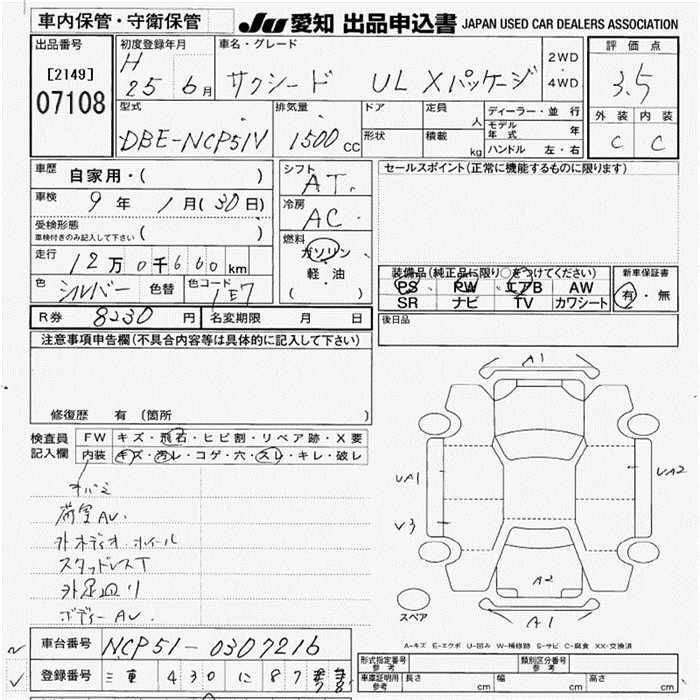 車内保管・守衛保管
JU 愛知 出品申込書 JAPAN USED CAR DEALERS ASSOCIATION
出品番号
[2149]
07108
初度登録年月
H 25 6月
車名・グレード
サクシード UL Xパッケージ
2WD
・
4WD
評価点
3.5
外装 内装
C C
型式
DBE-NCP51V
排気量
1500 CC
ドア
形状
定員 人
積載 kg
ディーラー・並行
モデル年式 年
ハンドル 左・右
車歴 自家用・( )
車検 9年 1月(30日)
受検形態
車検付きのみ記入して下さい ( )
走行 12万0千660km
色 シルバー 色替 色コード 1E7
シフト
AT
冷房
AC
燃料
ガソリン
軽・油
( )
セールスポイント(正常に機能するものに限ります)
装備品(純正品に限り○をつけてください)
PS PW エアB AW
SR ナビ TV カワシート
新車保証書
有・無
R券 8230円 名変期限 月 日
後日品
注意事項申告欄(不具合内容等は具体的に記入して下さい)
修復歴 有(箇所 )
検査員
記入欄
FW キズ・飛石・ヒビ割・リペア跡・X要
内装 キズ・汚レ・コゲ・穴・スレ・キレ・破レ
荷室AU.
スタッドレスT
ボディーAU.
A1
UA1
UA2
V3
A2
A1
スペア
A-キズ E-エクボ U-凹み W-補修跡 S-サビ C-腐食 XX-交換済
車台番号 NCP51-0307216
登録番号 三重 430 に 87
型式指定番号
参考
類別区分番号
参考
車庫証明用
参考
長さ cm
幅 cm
高さ cm